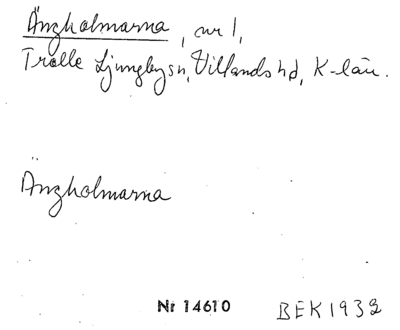 Ängholmarna, nr 1,
Trolle Ljungby sn, Villands hd, K-län.
Ängholmarna
Nr 14610 BEK 1932